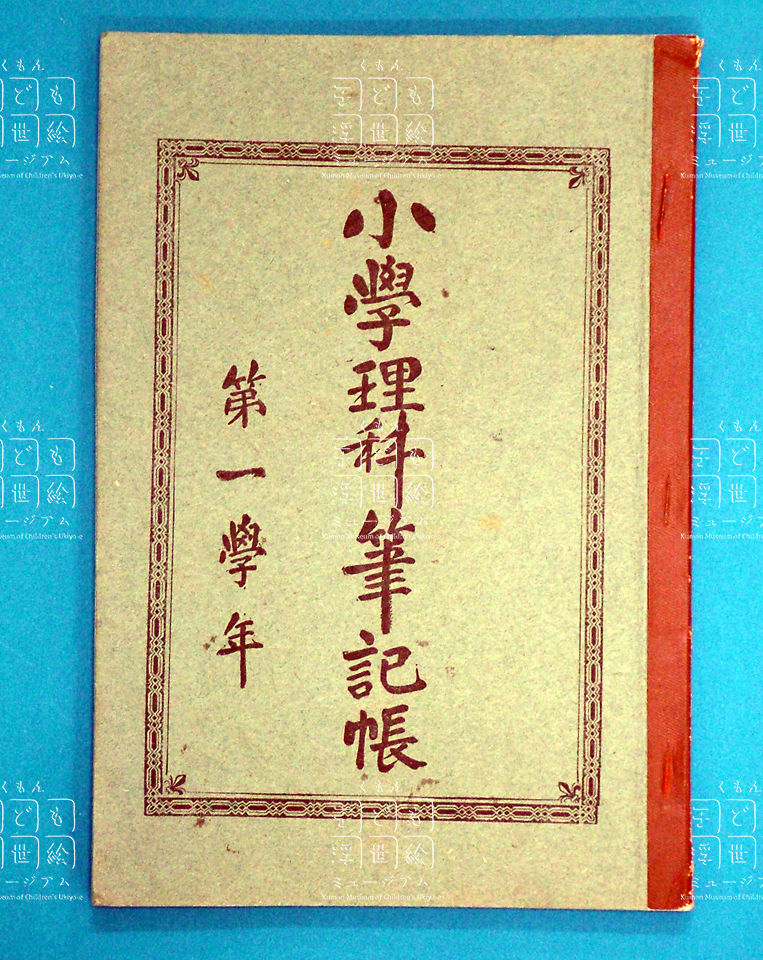 小學理科筆記帳
第一學年
くもん
子ども
浮世絵
ミュージアム
Kumon Museum of Children's Ukiyo-e